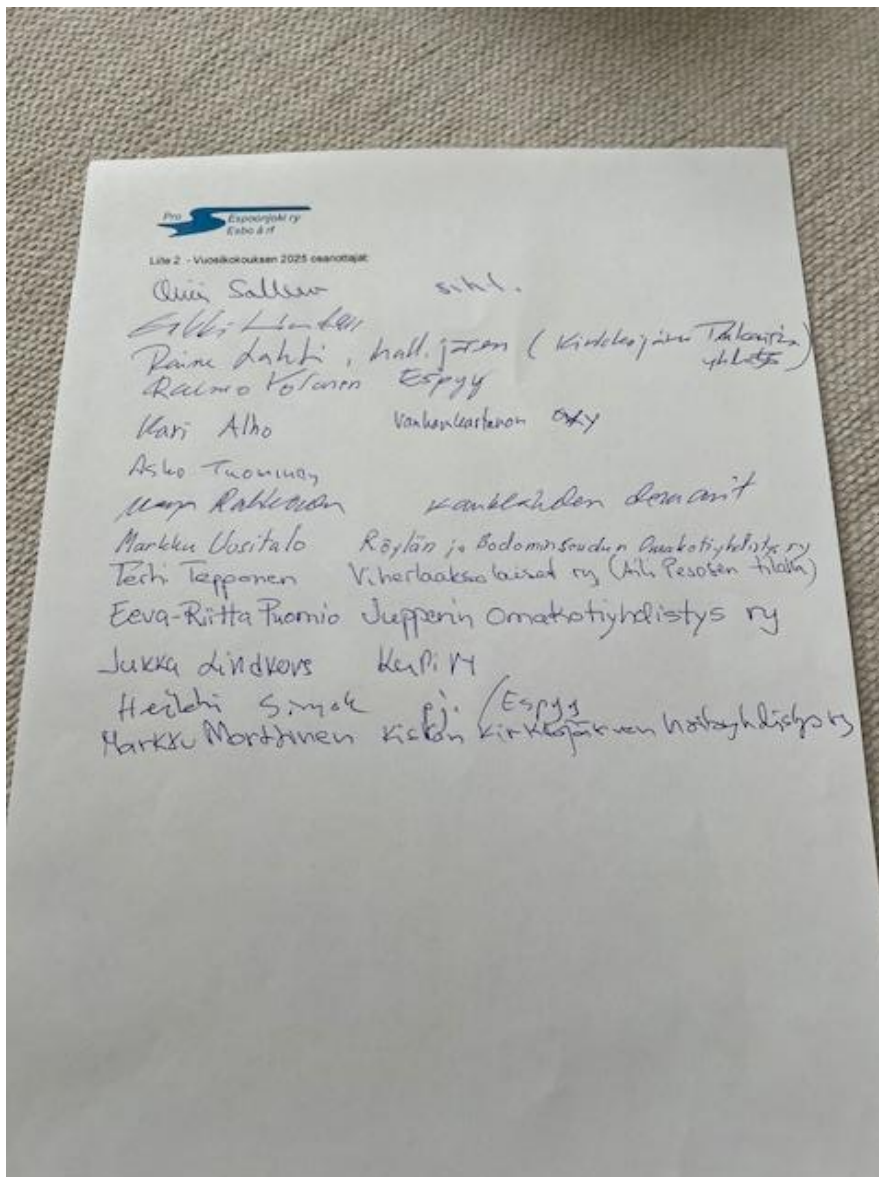 Pro Espoonjoki ry
Esbo å rf
Liite 2 - Vuosikokouksen 2025 osanottajat:
siht.
Raine Lahti, hall. jäsen (Kirkkojärvi
Raimo Espyy
Kari Alho Vanhankartanon oky
Asko Tuominen
demarit
Markku Uusitalo Röylän ja Bodominseudun Omakotiyhdistys ry
Terhi Tepponen Viherlaaksolaiset ry (Aili Pesosen tilalla)
Eeva-Riitta Puomio Jupperin Omakotiyhdistys ry
Jukka Lindfors ry
Heikki pj. / Espyy
Markku Morttinen Kirkkojärven hoitoyhdistys ry